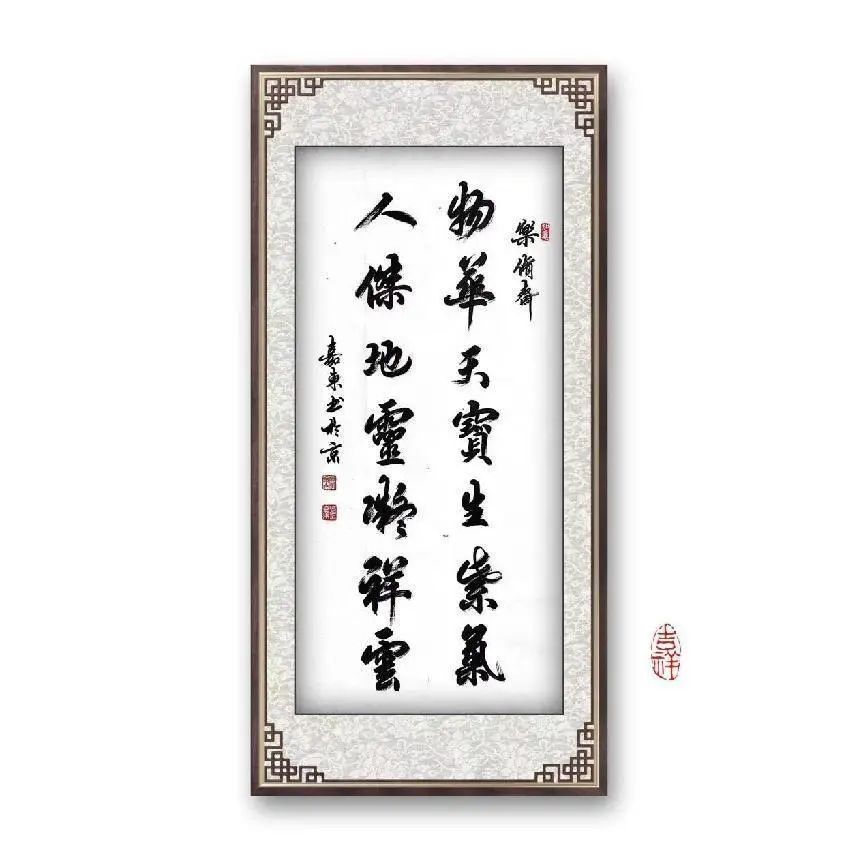 樂脩齋
物華天寶生紫氣
人傑地靈凝祥雲
嘉東书於京
吉祥